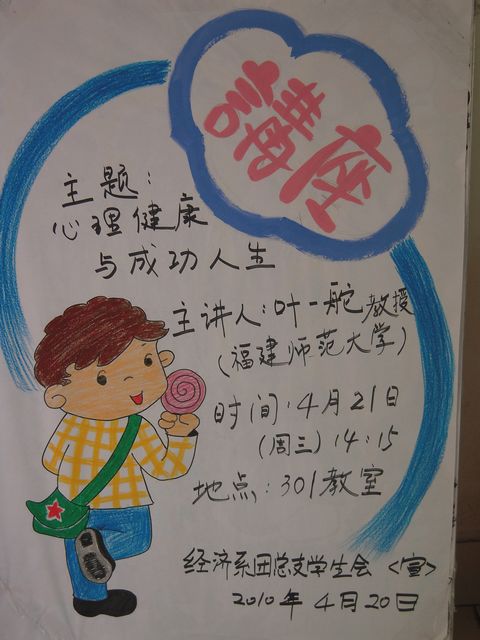 講座
主题:
心理健康
与成功人生
主讲人:叶一舵教授
(福建师范大学)
时间:4月21日
(周三)14:15
地点:301教室
经济系团总支学生会<宣>
2010年4月20日